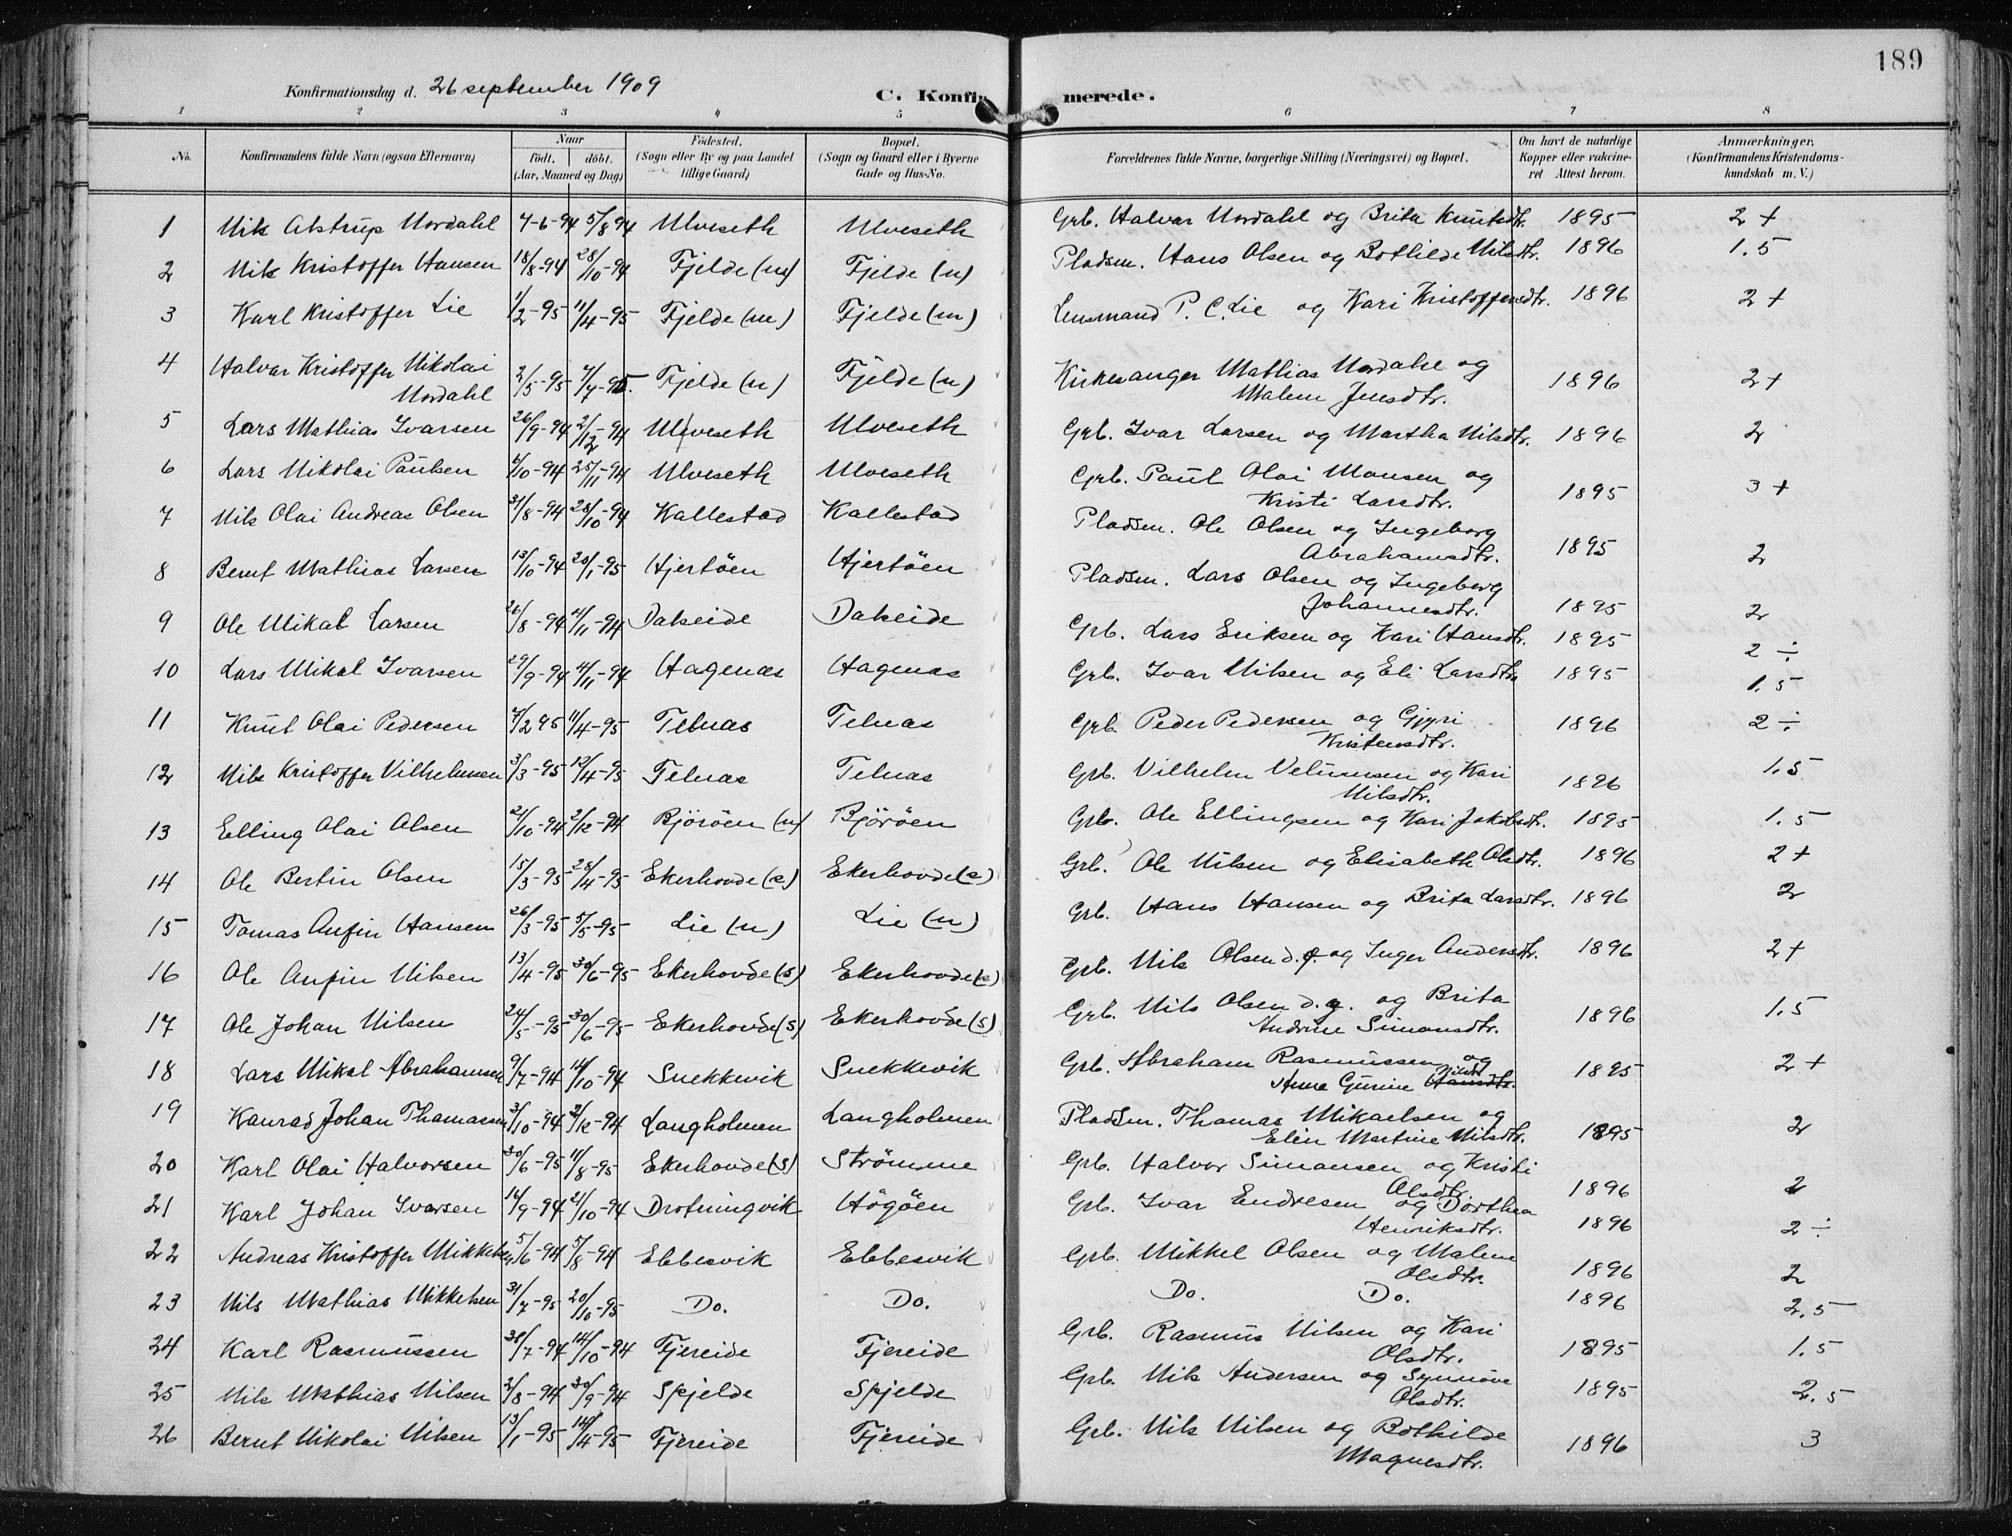 189
Konfirmationsdag d. 26 september 1909
C. Konfirmerede.
1 2 3 4 5 6 7 8
No. Konfirmandens fulde Navn (ogsaa Efternavn) Naar født. døbt. (Aar, Maaned og Dag) Fødested. (Sogn eller By og paa Landet tillige Gaard) Bopæl. (Sogn og Gaard eller i Byerne Gade og Hus-No. Forældrenes fulde Navne, borgerlige Stilling (Næringsvei) og Bopæl. Om havt de naturlige Kopper eller vakcineret Attest herom. Anmærkninger. (Konfirmandens Kristendomskundskab m. V.)
1 Nils Alstrup Nordahl 7-6-94 5/8 94 Ulveseth Ulveseth Grb. Halvar Nordahl og Brita Knutsdtr. 1895 2+
2 Nils Kristoffer Hansen 18/8-94 28/10-94 Fjelde (n) Fjelde (n) Pladsm. Hans Olsen og Bothilde Nilsdtr. 1896 1.5
3 Karl Kristoffer Lie 1/2-95 11/4-95 Fjelde (m) Fjelde (m) Lensmand P. C. Lie og Kari Kristoffersdtr. 1896 2+
4 Halvar Kristoffer Nikolai
Nordahl 2/5-95 7/7-95. Fjelde (n) Fjelde (n) Kirkesanger Mathias Nordahl og
Malene Jensdtr. 1896 2+
5 Lars Mathias Ivarsen 26/9-94 2/12-94 Ulveseth Ulveseth Grb. Ivar Larsen og Martha Nilsdtr. 1896 2
6 Lars Nikolai Paulsen 6/10-94 25/11-94 Ulveseth Ulveseth Grb. Paul Olai Monsen og
Kristi Larsdtr. 1895 3+
7 Nils Olai Andreas Olsen 31/8-94 28/10-94 Kallestad Kallestad Pladsm. Ole Olsen og Ingeborg
Abrahamsdtr. 1895 2
8 Bernt Mathias Larsen 13/10-94 20/1-95 Hjertøen Hjertøen Pladsm. Lars Olsen og Ingeborg
Johannesdtr. 1895 2
9 Ole Mikal Larsen 26/8-94 4/11-94 Dalseide Dalseide Grb. Lars Eriksen og Kari Hansdtr. 1895 2 ÷
10 Lars Mikal Ivarsen 29/9-94 4/11-94 Hagenæs Hagenæs Grb. Ivar Nilsen og Eli Larsdtr 1895 1.5
11 Knut Olai Pedersen 7/2 95 11/4-95 Telnæs Telnæs Grb. Peder Pedersen og Gjyri
Kristensdtr. 1896 2 ÷
12 Nils Kristoffer Vilhelmsen 3/3-95 15/4-95 Telnæs Telnæs Grb. Vilhelm Velumsen og Kari
Nilsdtr. 1896 1.5
13 Elling Olai Olsen 21/10-94 2/12-94 Bjørøen (n) Bjørøen Grb. Ole Ellingsen og Kari Jakobsdtr. 1895 1.5
14 Ole Bertin Olsen 15/3-95 28/4-95 Ekerhovde (s) Ekerhovde (s) Grb. Ole Nilsen og Elisabeth Olsdtr. 1896 2+
15 Tomas Anfin Hansen 26/3-95 5/5-95 Lie (n) Lie (n) Grb. Hans Hansen og Brita Larsdtr. 1896 2
16 Ole Anfin Nilsen 13/4-95 30/6-95 Ekerhovde (s) Ekerhovde (s) Grb. Nils Olsen d. y. og Inger Andersdtr. 1896 2+
17 Ole Johan Nilsen 24/5-95 30/6-95 Ekerhovde (s) Ekerhovde (s) Grb. Nils Olsen d. y. og Brita
Andrine Simonsdtr. 1896 1.5
18 Lars Mikal Abrahamsen 9/7-94 14/10-94 Snekkevik Snekkevik Grb. Abraham Rasmussen og
Anna Gurine Nilsdtr. 1895 2+
19 Konrad Johan Thomassen 3/10-94 2/12-94 Langholmen Langholmen Pladsm. Thomas Mikaelsen og
Elen Martine Nilsdtr. 1895 2
20 Karl Olai Halvorsen 30/6-95 11/8-95 Ekerhovde (s) Strømme Grb. Halvor Simonsen og Kristi
Olsdtr. 1896 2
21 Karl Johan Ivarsen 14/9-94 21/10-94 Drotningvik Høgøen Grb. Ivar Endresen og Dorthea
Henriksdtr. 1896 2 ÷
22 Andreas Kristoffer Mikkelsen 5/6-94 5/8-94 Ebbesvik Ebbesvik Grb. Mikkel Olsen og Malene
Olsdtr. 1896 2
23 Nils Mathias Mikkelsen 31/7-95 20/10-95 Do. Do. Do. Do. 1896 2.5
24 Karl Rasmussen 30/7-94 14/10-94 Fjereide Fjereide Grb. Rasmus Nilsen og Kari
Olsdtr. 1895 1.5
25 Nils Mathias Nilsen 2/8-94 30/9-94 Spjelde Spjelde Grb. Nils Andersen og Synnøve
Olsdtr. 1895 2.5
26 Bernt Nikolai Nilsen 13/1-95 14/4-95 Fjereide Fjereide Grb. Nils Nilsen og Bothilde
Magnesdtr. 1896 3